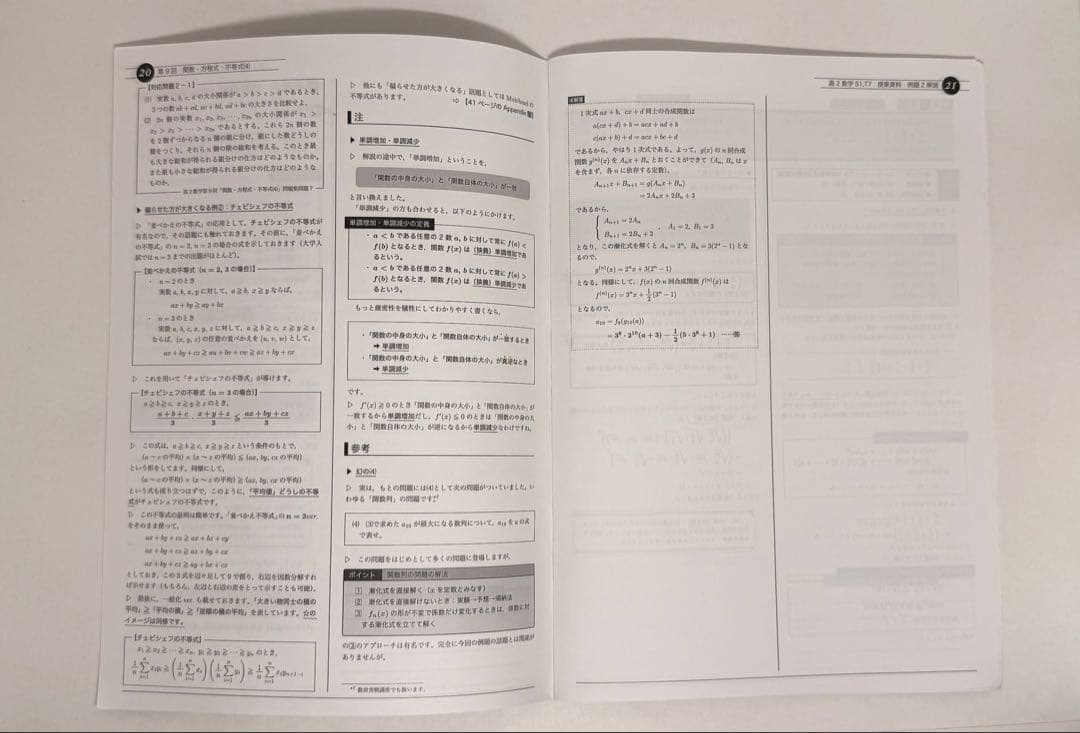 20 第9回 関数・方程式・不等式(4)
【対応問題2-1】
(1) 実数 a, b, c, d の大小関係が a > b > c > d であるとき,
3つの数 ab + cd, ac + bd, ad + bc の大きさを比較せよ.
(2) 2n 個の実数 x₁, x₂, x₃, ⋯, x₂ₙ の大小関係が x₁ >
x₂ > x₃ > ⋯ > x₂ₙ であるとする. これら 2n 個の数
を2個ずつからなる n 個の組に分け, 組にした数どうしの
積をつくり, それら n 個の積の総和を考える. このとき最
も大きな総和が得られる組分けの仕方はどのようなものか.
また最も小さな総和が得られる組分けの仕方はどのような
ものか.
高2数学第9回「関数・方程式・不等式(4)」問題集問題7
▶ 偏らせた方が大きくなる例②:チェビシェフの不等式
▷ 「並べかえの不等式」の応用として, チェビシェフの不等式が
有名なので, その話題にも触れておきます. その前に, 「並べか
えの不等式」の n = 2, n = 3 の場合の式を示しておきます(大学入
試では n = 3 までの出題がほとんど).
【並べかえの不等式(n = 2, 3 の場合)】
・ n = 2 のとき
実数 a, b, x, y に対して, a ≧ b, x ≧ y ならば,
ax + by ≧ ay + bx
・ n = 3 のとき
実数 a, b, c, x, y, z に対して, a ≧ b ≧ c, x ≧ y ≧ z
ならば, (x, y, z) の任意の並べかえを (u, v, w) として,
ax + by + cz ≧ au + bv + cw ≧ az + by + cx
▷ これを用いて「チェビシェフの不等式」が導けます.
【チェビシェフの不等式(n = 3 の場合)】
a ≧ b ≧ c, x ≧ y ≧ z のとき,
(a + b + c)/3 · (x + y + z)/3 ≦ (ax + by + cz)/3
▷ この式は, a ≧ b ≧ c, x ≧ y ≧ z という条件のもとで,
(a〜c の平均) × (x〜z の平均) ≦ (ax, by, cz の平均)
という形をしてます. 同様にして,
(a〜c の平均) × (x〜z の平均) ≧ (az, by, cx の平均)
という式も成り立つはずで, このように, 「平均値」どうしの不等
式がチェビシェフの不等式です.
▷ この不等式の証明は簡単です. 「並べかえ不等式」の n = 3ver.
をそのまま使って,
ax + by + cz ≧ ax + bz + cy
ax + by + cz ≧ az + by + cx
としておき, この3式を辺々足して9で割り, 右辺を因数分解すれ
ば示せます(もちろん, 左辺と右辺の差をとって示すことも可能).
▷ 最後に, 一般化 ver も載せておきます. 「大きい物同士の積の
平均」≧「平均の積」≧「逆順の積の平均」を表しています. ☆の
イメージは同様です.
【チェビシェフの不等式】
x₁ ≧ x₂ ≧ ⋯ ≧ xₙ, y₁ ≧ y₂ ≧ ⋯ ≧ yₙ のとき,
1/n Σ xᵢyᵢ ≧ (1/n Σ xᵢ)(1/n Σ yᵢ) ≧ 1/n Σ xᵢyₙ₊₁₋ᵢ
▷ 他にも「偏らせた方が大きくなる」話題としては Muirhead の
不等式があります.
⇨ 【41 ページの Appendix
注
▶ 単調増加・単調減少
▷ 解説の途中で, 「単調増加」ということを,
「関数の中身の大小」と「関数自体の大小」が一致
と言い換えました.
「単調減少」の方も合わせると, 以下のようにかけます.
単調増加・単調減少の定義
・ a < b である任意の2数 a, b に対して常に f(a) <
f(b) となるとき, 関数 f(x) は(狭義)単調増加であ
るという.
・ a < b である任意の2数 a, b に対して常に f(a) >
f(b) となるとき, 関数 f(x) は(狭義)単調減少であ
るという.
もっと厳密性を犠牲にしてわかりやすく書くなら,
・「関数の中身の大小」と「関数自体の大小」が一致するとき
➡ 単調増加
・「関数の中身の大小」と「関数自体の大小」が真逆なとき
➡ 単調減少
です.
▷ f′(x) ≧ 0 のとき「関数の中身の大小」と「関数自体の大小」が
一致するから単調増加だし, f′(x) ≦ 0 のときは「関数の中身の大
小」と「関数自体の大小」が逆になるから単調減少なわけですね.
参考
▶ 幻の(4)
▷ 実は, もとの問題には(4)として次の問題がついていました. い
わゆる「関数列」の問題です.*⁷
(4) (3)で求めた a₁₉ が最大になる数列について, a₁₉ を a の式
で表せ.
▷ この問題をはじめとして多くの問題に登場しますが,
ポイント 関数列の問題の解法
① 漸化式を直接解く(x を定数とみなす)
② 漸化式を直接解けないとき:実験→予想→帰納法
③ fₙ(x) の形が不変で係数だけ変化するときは, 係数に対
する漸化式を立てて解く
の③のアプローチは有名です. 完全に今回の例題の話題とは関係が
ありませんが.
*⁷ 数前実戦講座でも扱います.
高2数学 S1,T7 授業資料 例題2解説 21
1次式 ax + b, cx + d 同士の合成関数は
a(cx + d) + b = acx + ad + b
c(ax + b) + d = acx + bc + d
であるから, やはり1次式である. よって, g(x) の n 回合成
関数 g⁽ⁿ⁾(x) を Aₙx + Bₙ とおくことができて (Aₙ, Bₙ は x
を含まず, 各 n に依存する定数),
Aₙ₊₁x + Bₙ₊₁ = g(Aₙx + Bₙ)
= 2Aₙx + 2Bₙ + 3
であるから,
Aₙ₊₁ = 2Aₙ
Bₙ₊₁ = 2Bₙ + 3 , A₁ = 2, B₁ = 3
となり, この漸化式を解くと Aₙ = 2ⁿ, Bₙ = 3(2ⁿ − 1) とな
るので,
g⁽ⁿ⁾(x) = 2ⁿx + 3(2ⁿ − 1)
となる. 同様にして, f(x) の n 回合成関数 f⁽ⁿ⁾(x) は
f⁽ⁿ⁾(x) = 3ⁿx + 1/2(3ⁿ − 1)
となるので,